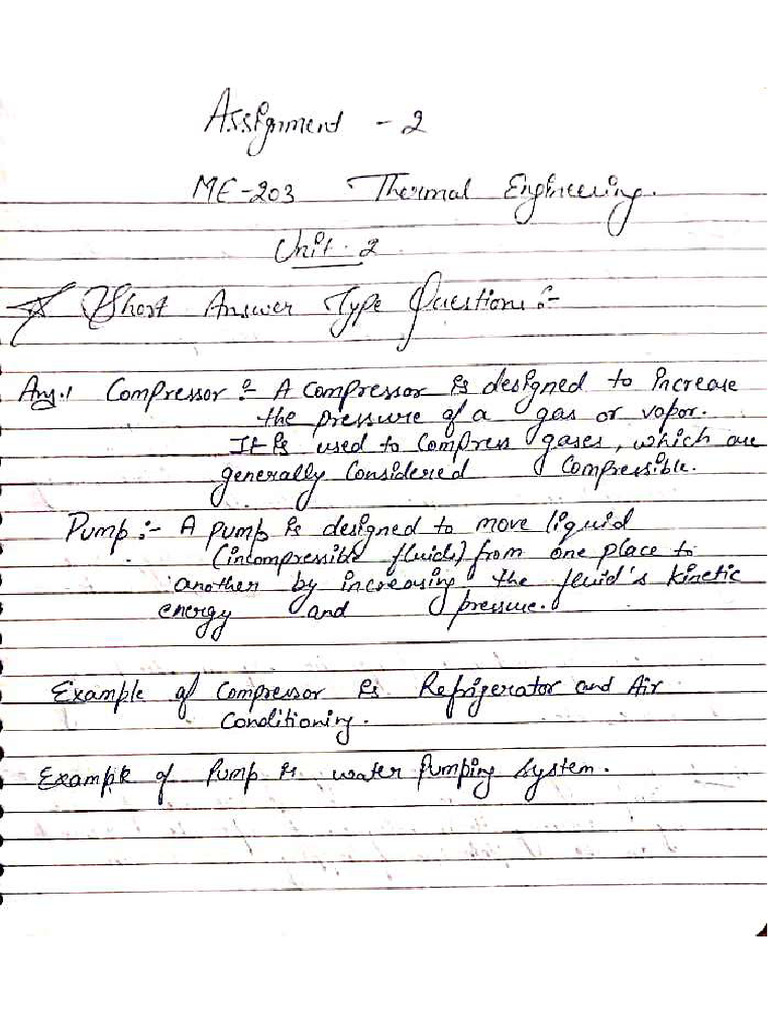 Assignment - 2
ME-203 Thermal Engineering.
Unit. 2
Short Answer Type Questions :-
Ans.1 Compressor :- A compressor is designed to increase
the pressure of a gas or vapor.
It is used to compress gases, which are
generally considered compressible.
Pump :- A pump is designed to move liquid
(incompressible fluids) from one place to
another by increasing the fluid's kinetic
energy and pressure.
Example of compressor is Refrigerator and Air
Conditioning.
Example of Pump is water pumping system.